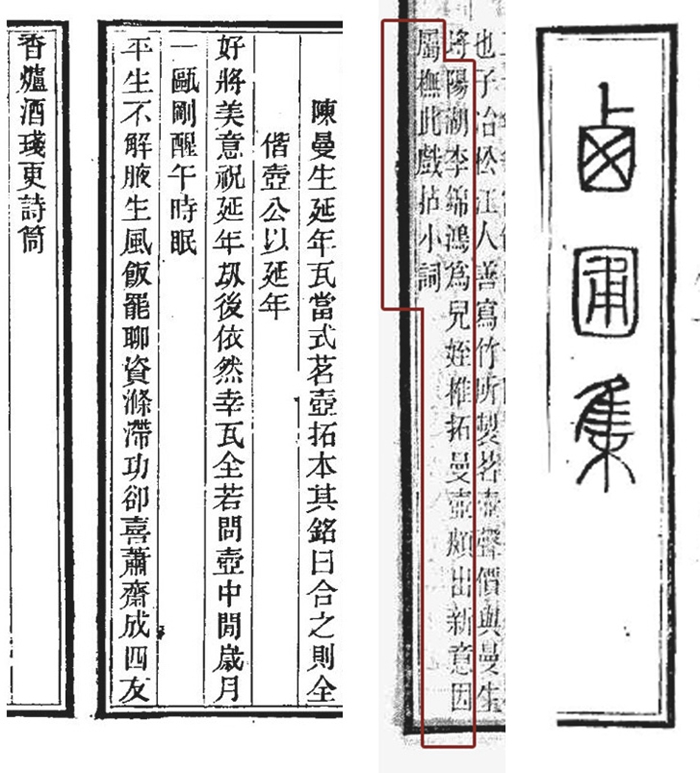 西圃集
也子冶松江人善寫竹所製茗壺聲價與曼生
埒陽湖李錦鴻為兒姪椎拓曼壺頗出新意因
屬橅此戲拈小詞
陳曼生延年瓦當式茗壺拓本其銘曰合之則全
偕壺公以延年
好將美意祝延年刼後依然幸瓦全若問壺中閒歲月
一甌剛醒午時眠
平生不解腋生風飯罷聊資滌滯功卻喜蕭齋成四友
香爐酒琖更詩筒